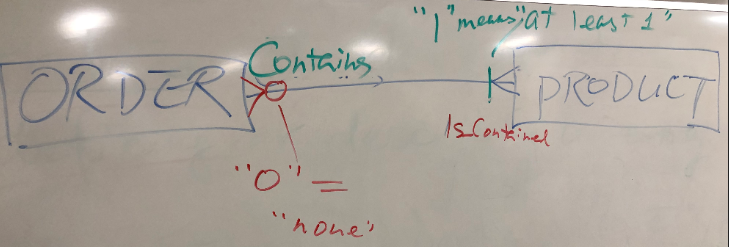 "1" means "at least 1"
ORDER
Contains
PRODUCT
Is Contained
"O" =
"none"